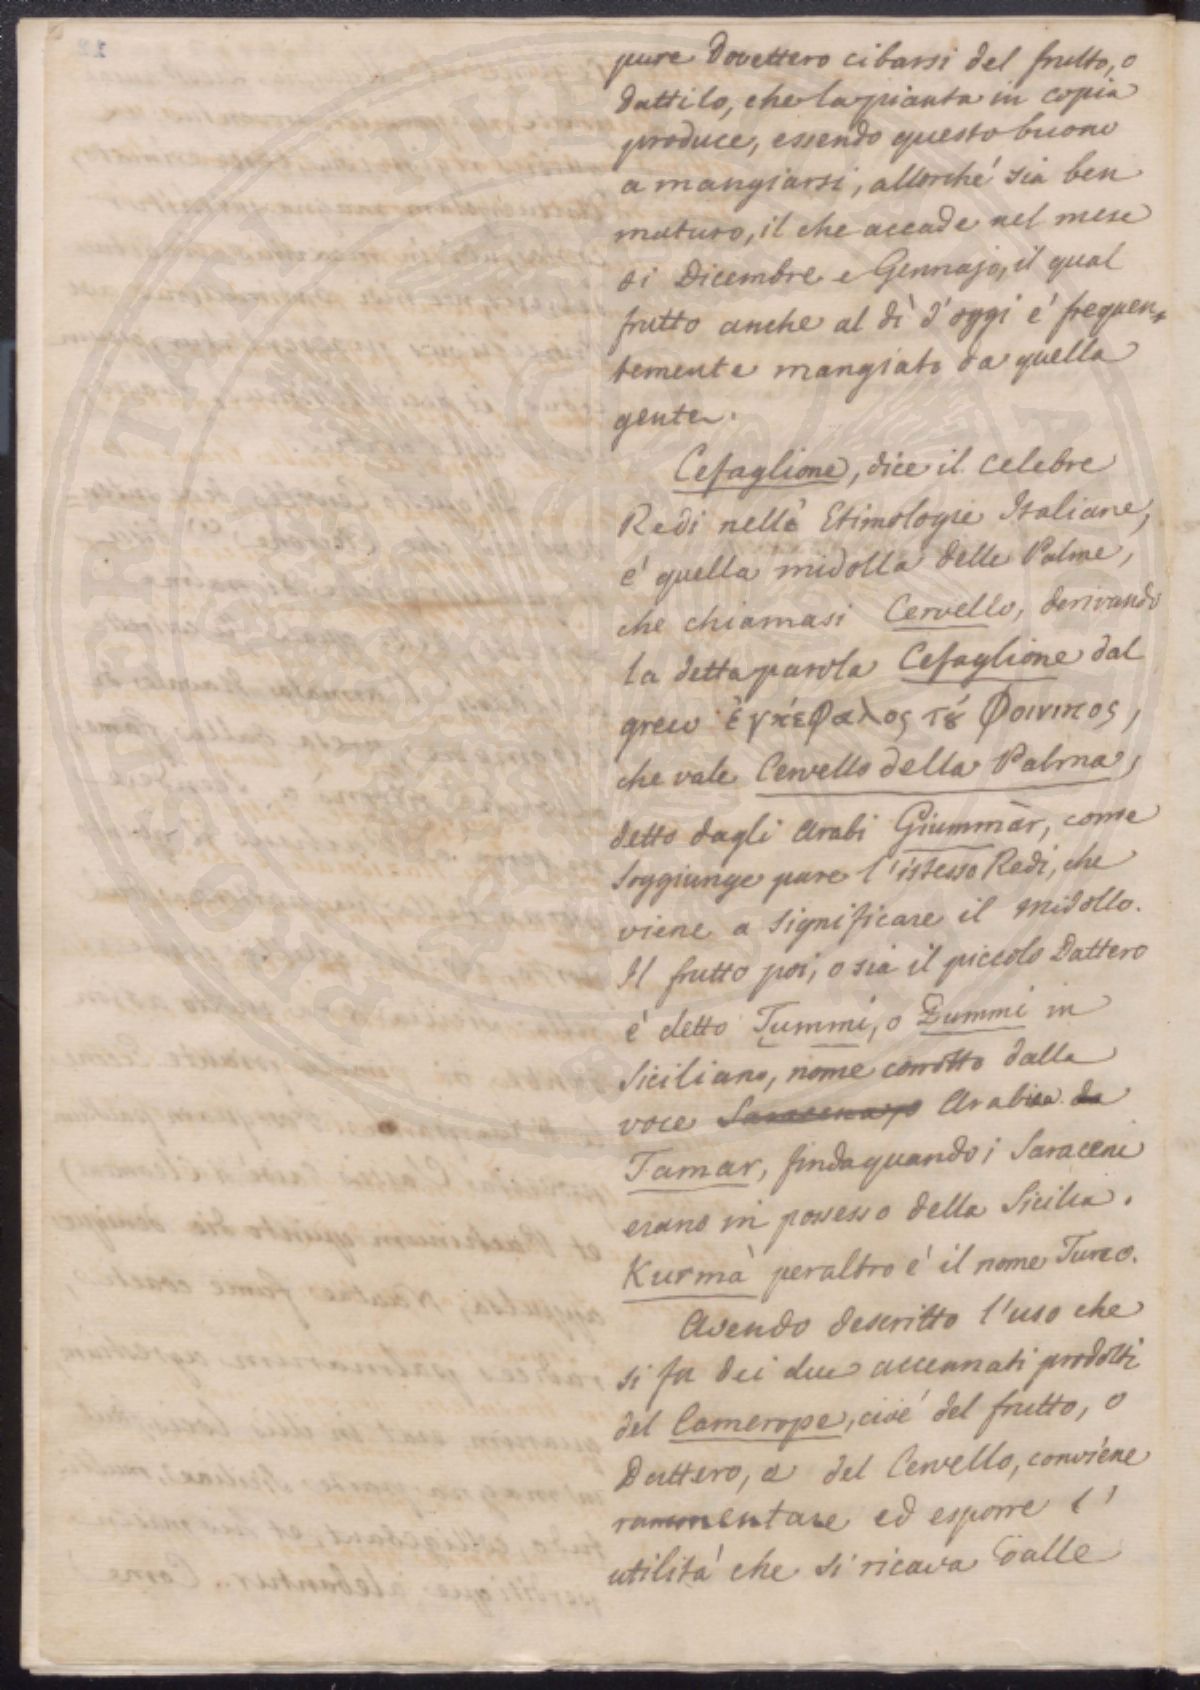 pure dovettero cibarsi del frutto, o
dattilo, che la pianta in copia
produce, essendo questo buono
a mangiarsi, allorché sia ben
maturo, il che accade nel mese
di Dicembre e Gennajo, il qual
frutto anche al dì d'oggi é frequen-
temente mangiato da quella
gente.
Cefaglione, dice il celebre
Redi nelle Etimologie Italiane,
é quella midolla delle Palme,
che chiamasi Cervello, derivando
la detta parola Cefaglione dal
greco ἐγκέφαλος τȣ́ Φοινικος,
che vale Cervello della Palma,
detto dagli Arabi Giummàr, come
soggiunge pure l'istesso Redi, che
viene a significare il midollo.
Il frutto poi, o sia il piccolo Dattero
è detto Tummi, o Zummi in
Siciliano, nome corrotto dalla
voce Arabica
Tamar, fin da quando i Saraceni
erano in possesso della Sicilia.
Kurmà peraltro é il nome Turco.
Avendo descritto l'uso che
si fa dei due accennati prodotti
del Camerope, cioé del frutto, o
Dattero, e del Cervello, conviene
rammentare ed esporre l'
utilità che si ricava dalle